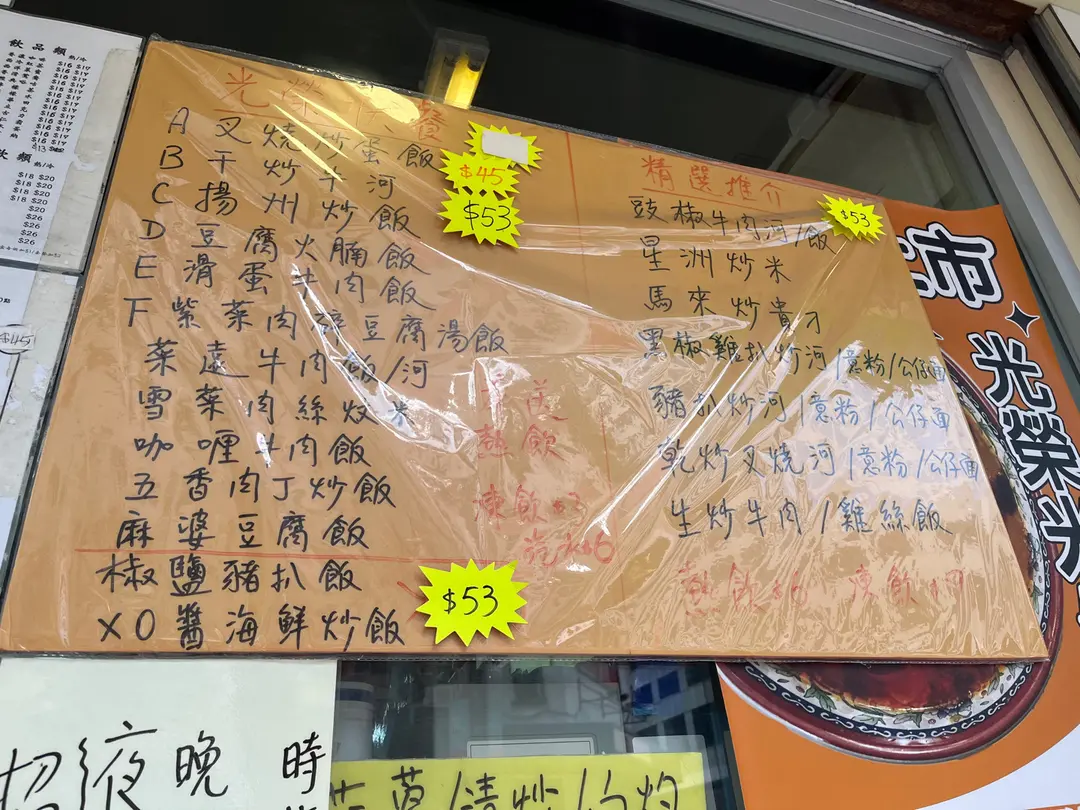 飲品類 熱/冷
$16 $17
$18 $20
$18 $20
$18 $20
$20
$26
$26
$26
$45
光榮 餐
A 叉燒炒蛋飯
B 干炒牛河
C 揚州炒飯
D 豆腐火腩飯
E 滑蛋牛肉飯
F 紫菜肉碎豆腐湯飯
菜遠牛肉飯/河
雪菜肉絲炆米
咖喱牛肉飯
五香肉丁炒飯
麻婆豆腐飯
椒鹽豬扒飯
XO醬海鮮炒飯
$45
$53
$53
送
熱飲
凍飲+3
汽水+6
精選推介
$53
豉椒牛肉河/飯
星洲炒米
馬來炒貴刁
黑椒雞扒炒河/意粉/公仔面
豬扒炒河/意粉/公仔面
乾炒叉燒河/意粉/公仔面
生炒牛肉/雞絲飯
熱飲+6 凍飲+9
市
光榮
招液晚 時
/清炒/白灼